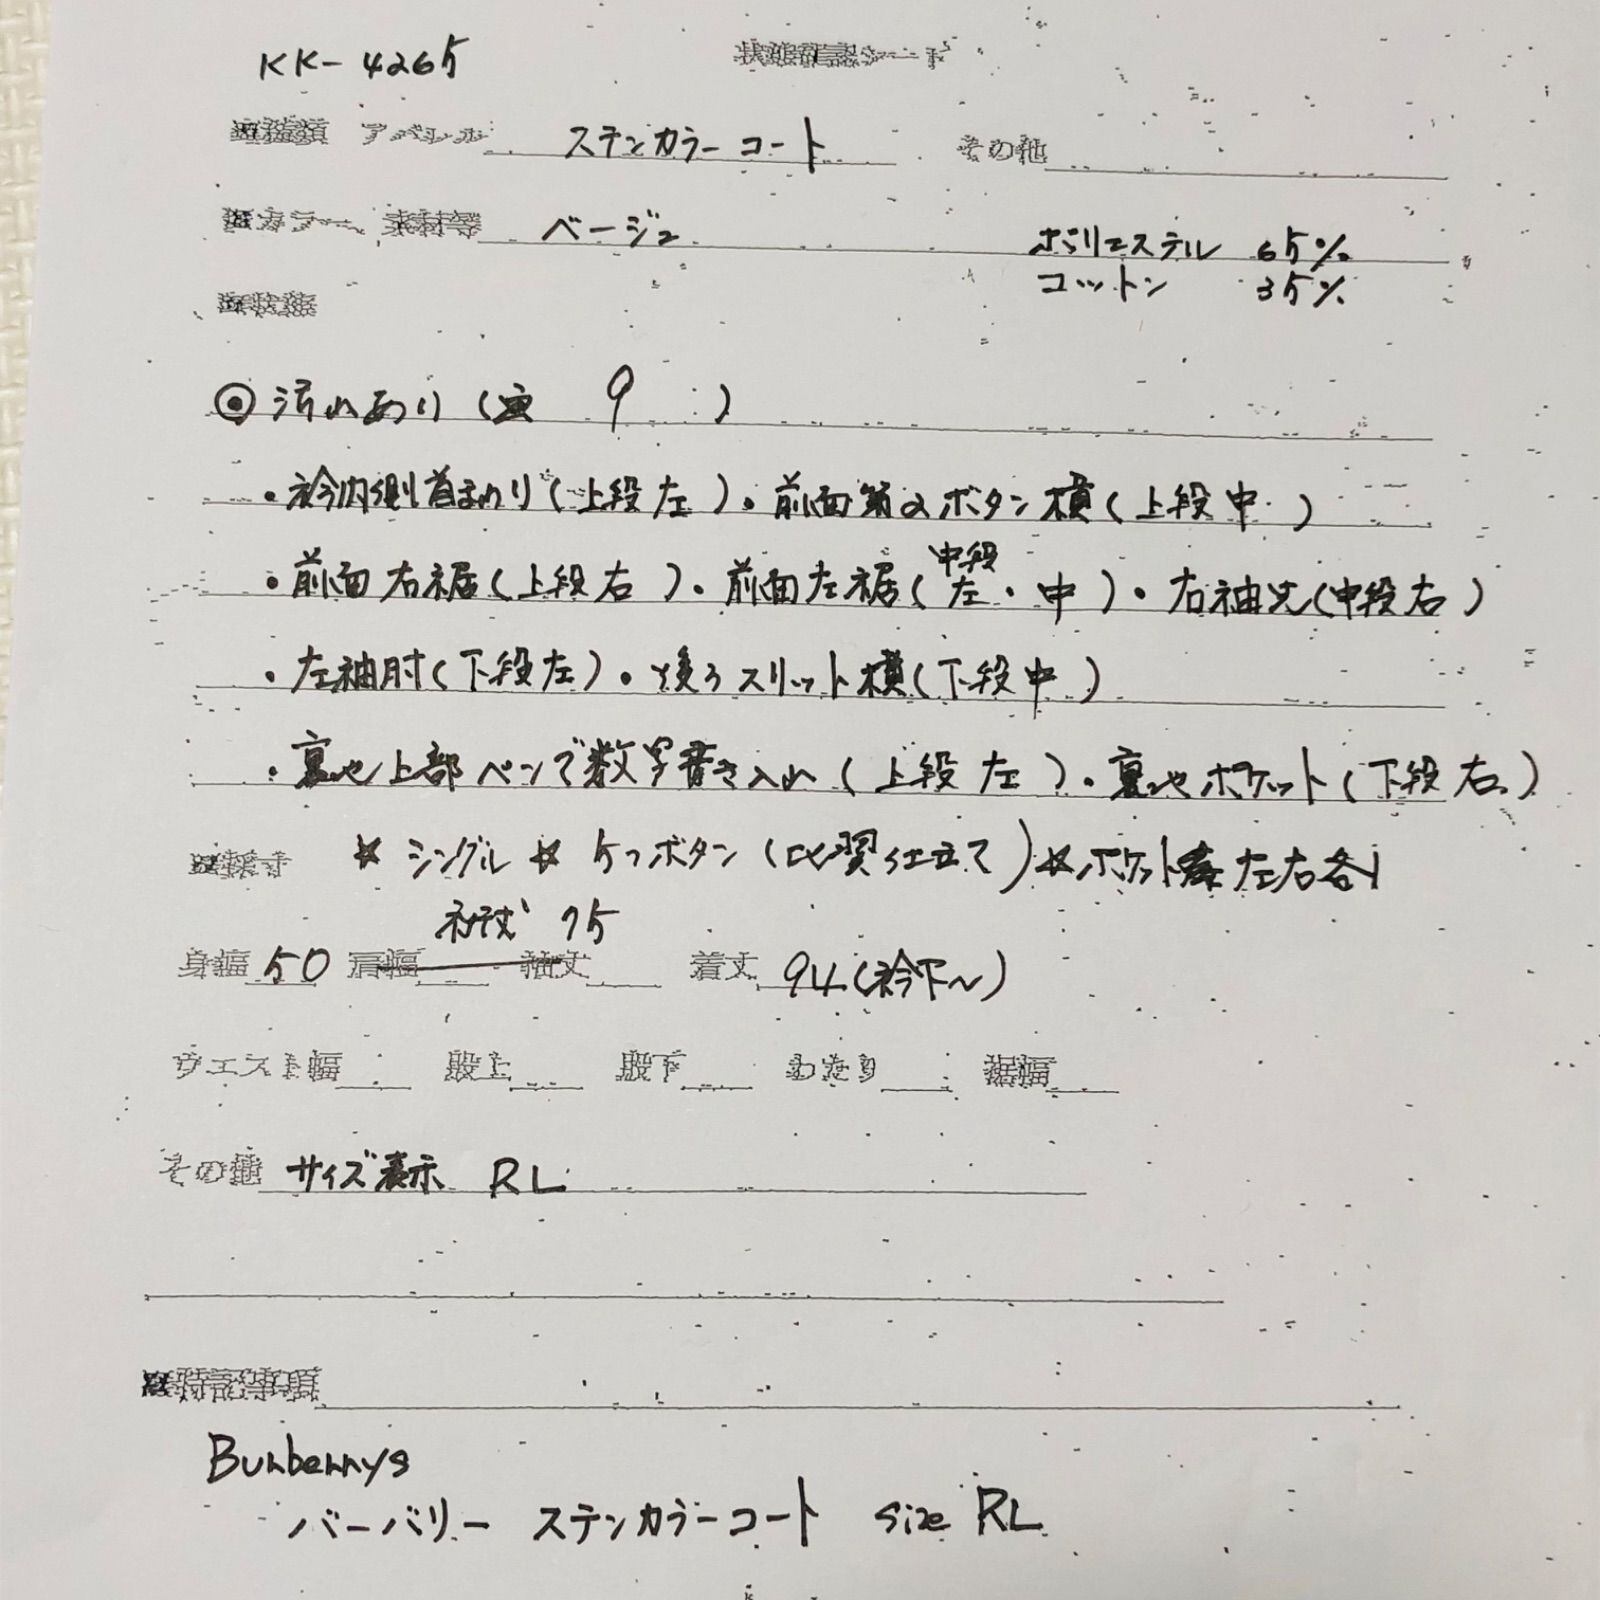 KK-4265
状態確認シート
アパレル ステンカラーコート その他
カラー、素材等 ベージュ ポリエステル 65%
コットン 35%
状態
◎汚れあり( 9 )
・衿内側首まわり(上段左)・前面第2ボタン横(上段中)
・前面右裾(上段右)・前面左裾(中段左・中)・右袖先(中段右)
・左袖肘(下段左)・後ろスリット横(下段中)
・裏地上部ペンで数字書き入れ(上段左)・裏地ポケット(下段右)
採寸 ☆シングル☆5つボタン(比翼仕立て)☆ポケット表左右各1
裄丈 75
身幅 50 肩幅 袖丈 着丈 94(衿下〜)
ウエスト幅 股上 股下 わたり 裾幅
その他 サイズ表示 RL
特記事項
Burberrys
バーバリー ステンカラーコート size RL